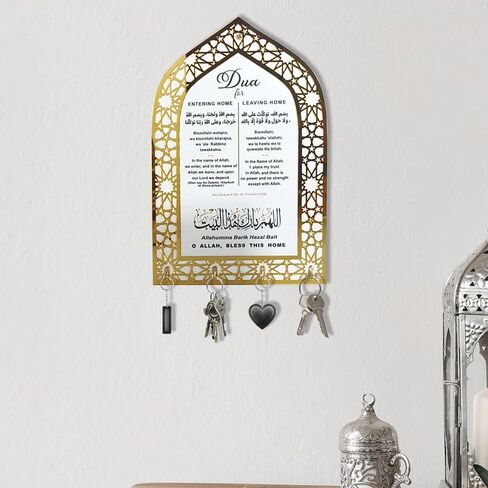 Dua
for
ENTERING HOME
بِسْمِ اللهِ وَلَجْنَا، وَبِسْمِ اللهِ
خَرَجْنَا، وَعَلَى اللهِ رَبِّنَا تَوَكَّلْنَا
Bismillahi walajna,
wa bismillahi kharajna,
wa 'ala Rabbina
tawakkalna.
In the name of Allah,
we enter, and in the name
of Allah we leave, and upon
our Lord we depend.
LEAVING HOME
بِسْمِ اللهِ، تَوَكَّلْتُ عَلَى اللهِ
، وَلَا حَوْلَ وَلَا قُوَّةَ إِلَّا بِاللهِ
Bismillahi,
tawakkaltu 'alallahi,
wa la hawla wa la
quwwata illa billah.
In the Name of Allah,
I place my trust
in Allah, and there is
no power and no strength
except with Allah.
اللهم بارك هذا البيت
Allahumma Barik Hazal Bait
O ALLAH, BLESS THIS HOME